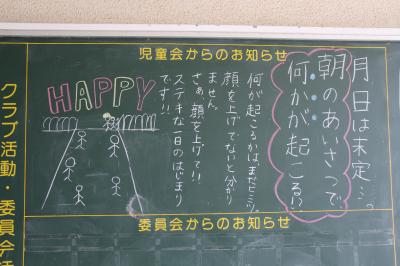 児童会からのお知らせ
月日は未定…。
朝のあいさつで
何かが起こる!?
何が起こるかは、まだヒミツ。
顔を上げてないと分かり
ません。
さぁ、顔を上げて!!
ステキな一日のはじまり
です!!
HAPPY
委員会からのお知らせ
クラブ活動・委員会活